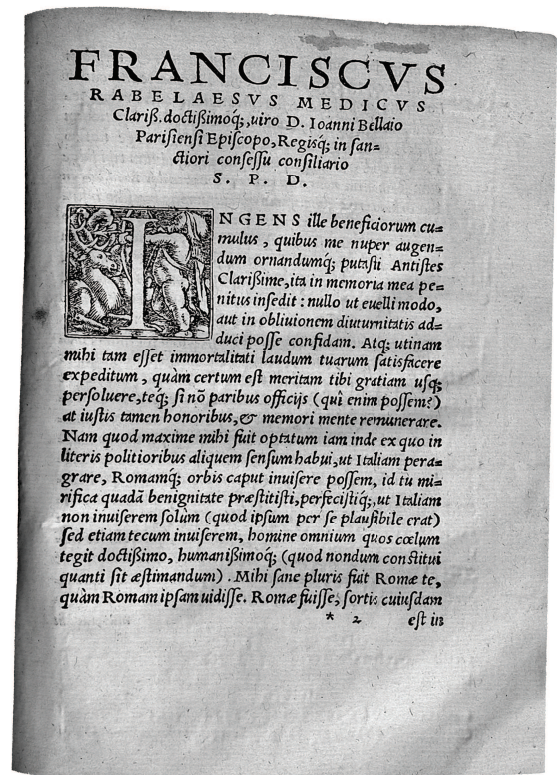 FRANCISCVS
RABELAESVS MEDICVS
Clariß. doctißimoq;, uiro D. Ioanni Bellaio
Parisiensi Episcopo, Regisq́; in san=
ctiori consessu consiliario
S. P. D.
INGENS ille beneficiorum cu=
mulus, quibus me nuper augen=
dum ornandumq́; putasti Antistes
Clarißime, ita in memoria mea pe=
nitus insedit: nullo ut euelli modo,
aut in obliuionem diuturnitatis ad=
duci posse confidam. Atq; utinam
mihi tam esset immortalitati laudum tuarum satisfacere
expeditum, quàm certum est meritam tibi gratiam usq;
persoluere, teq́; si nō paribus officijs (quî enim possem?)
at iustis tamen honoribus, & memori mente remunerare.
Nam quod maxime mihi fuit optatum iam inde ex quo in
literis politioribus aliquem sensum habui, ut Italiam pera=
grare, Romamq́; orbis caput inuisere possem, id tu mi=
rifica quadā benignitate præstitisti, perfecistiq́;, ut Italiam
non inuiserem solùm (quod ipsum per se plausibile erat)
sed etiam tecum inuiserem, homine omnium quos cœlum
tegit doctißimo, humanißimoq́; (quod nondum constitui
quanti sit æstimandum). Mihi sane pluris fuit Romæ te,
quàm Romam ipsam uidisse. Romæ fuisse, sortis cuiusdam
* 2 est in